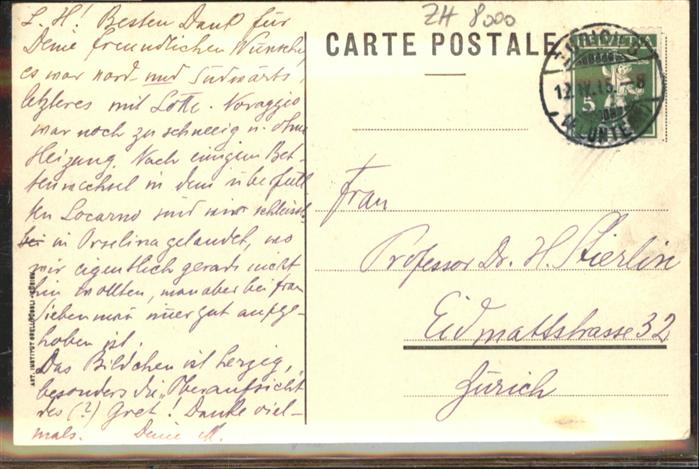 L. H! Besten Dank für
Deine freundlichen Wünsche,
es war nord und südwärts,
letzteres mit Lotte.
war noch zu schneeig u. ohne
Heizung. Nach einigem Bet-
tenwechsel in dem überfüll-
ten Locarno sind wir schliessl.
in Orselina gelandet, wo
wir eigentlich gerade nicht
hin wollten, man aber bei Frau
Sieben immer gut aufge-
hoben ist.
Das Bildchen ist herzig,
besonders die „Oberaufsicht
des (?) Gret! Danke viel-
mals. Deine M.
ZH 8000
CARTE POSTALE
HELVETIA
5
12.IV.15.–8
Frau
Professor Dr. H. Stierlin
Eidmattstrasse 32
Zürich